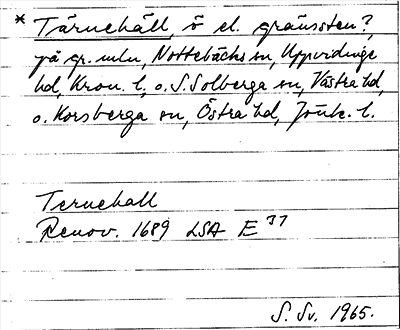 * Tärnehäll, ö el. gränssten?,
på gr. mln, Nottebäcks sn, Uppvidinge
hd, Kron. l., o. S. Solberga sn, Västra hd,
o. Korsberga sn, Östra hd, Jönk. l.
Ternehall
Renov. 1689 LSA E 37
S. Sv. 1965.